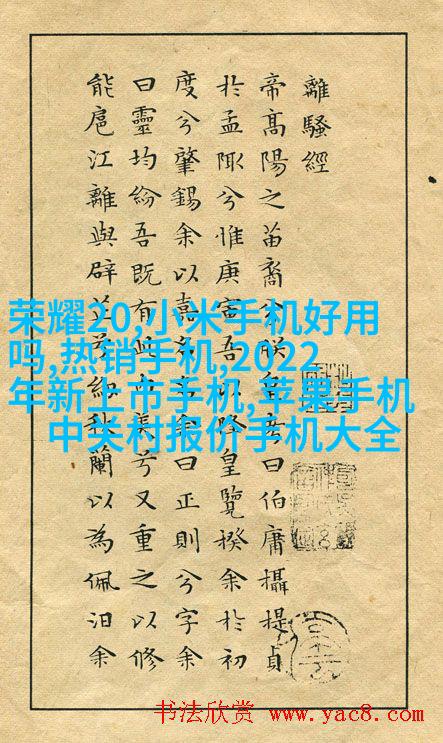 離騷經
帝高陽之苗裔兮朕曰伯庸攝提貞
於孟陬兮惟庚寅吾以降皇覽揆余於初
度兮肇錫余以嘉余曰正則兮字余
曰靈均紛吾既有此美兮又重之以修
能扈江離與辟芷兮紉秋蘭以為佩汨余
荣耀20,小米手机好用
吗,热销手机,2022
年新上市手机,苹果手机
中关村报价手机大全
书法欣赏 www.yac8.com